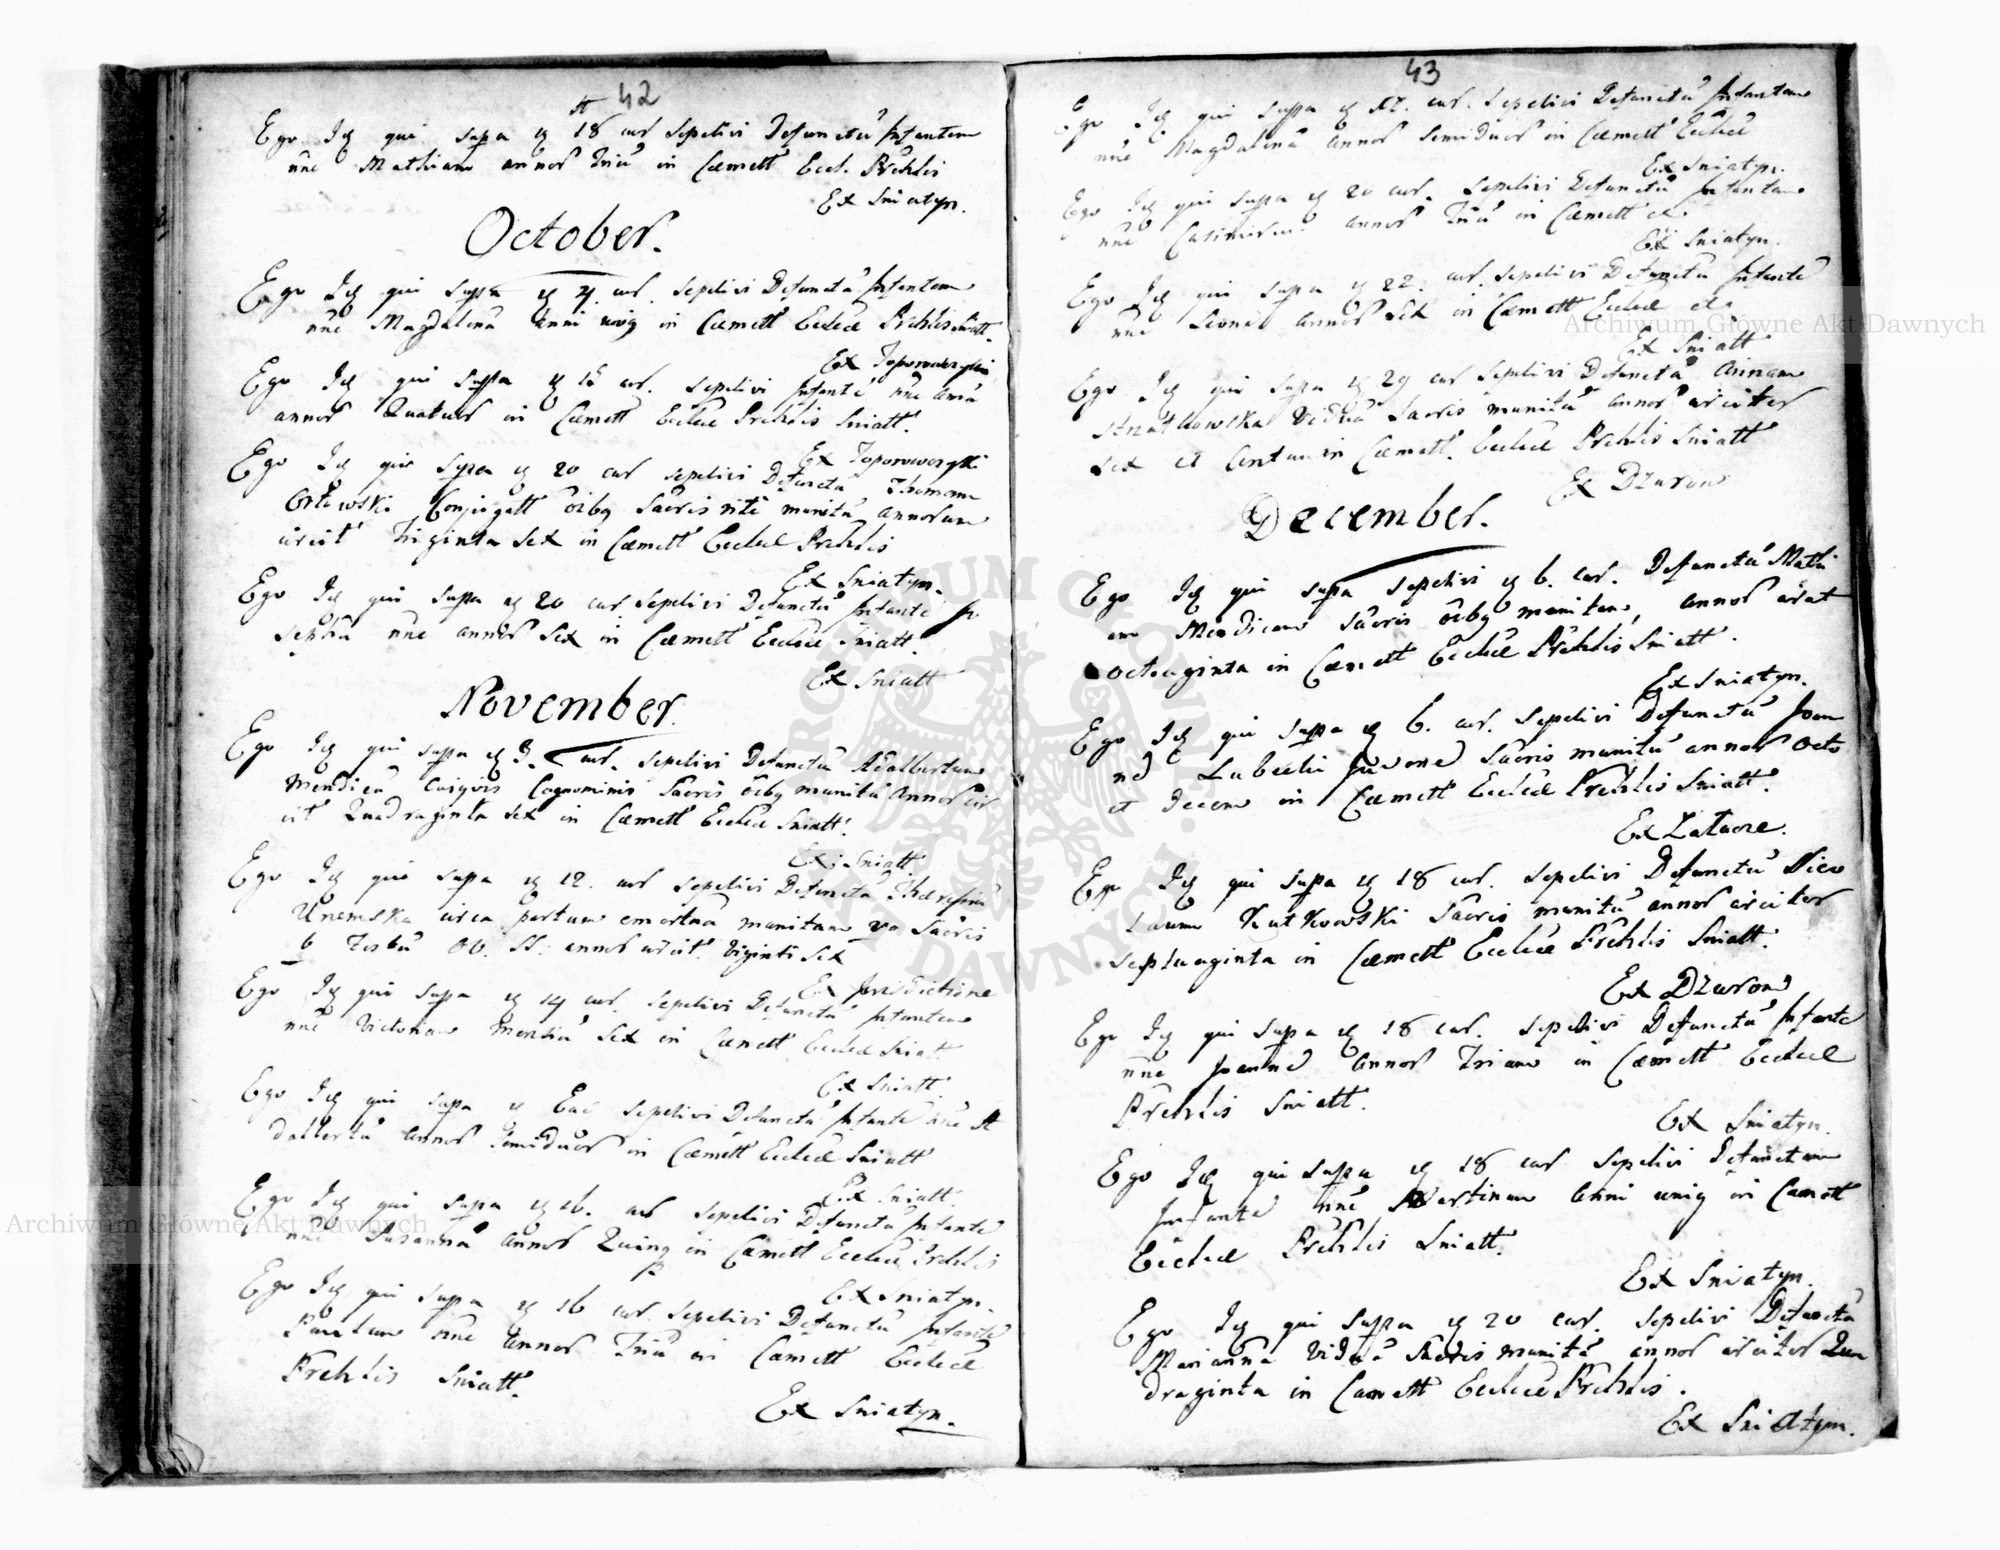 42
Ego Idq qui supra q 18 cur sepelivi Defunctū Infantem
nñe Mathiam annor Triū in Cæmett Eccl. Prchlis
Ex Sniatyn.
October.
Ego Idq qui supra q 4. cur. sepelivi Defunctā Infantem
nñe Magdalenā anni uniq in Cæmett Eccleæ Prchlis Sniatt.
Ex Toporowcysti
Ego Idq qui supra q 15 cur. sepelivi Infantē nñe
annor Quatuor in Cæmett Eccleæ Prchlis Sniatt.
Ex Toporowcysti
Ego Idq qui supra q 20 cur sepelivi Defunctū Thomam
Orłowski Conjugatt oibq Sacris ritè munitū annorum
circit Triginta sex in Cæmett Eccleæ Prchlis
Ex Sniatyn.
Ego Idq qui supra q 20 cur sepelivi Defunctū Infantē Jo
sephū nñe annor sex in Cæmett Eccleæ Sniatt.
Ex Sniatt
November.
Ego Idq qui supra q 3. cur. sepelivi Defunctū Adalbertum
Mendicū Cognominis Sacris oibq munitū annor cir
cit Quadraginta sex in Cæmett Eccleæ Sniatt.
Ex Sniatt.
Ego Idq qui supra q 12. cur sepelivi Defunctā Theresiā
Unemska circa partum emortua munitam Sacris
annor circit. Viginti sex
Ex Jurisdictione
Ego Idq qui supra q 14 cur. sepelivi Defunctā Infantem
nñe Victoriam mensiū sex in Cæmett Eccleæ Sniatt
Ex Sniatt.
Ego Idq qui supra q Ead sepelivi Defunctū Infantē nñe A
dalbertū annor semiduor in Cæmett Eccleæ Sniatt
Ex Sniatt.
Ego Idq qui supra q 16. cur sepelivi Defunctā Infantē
nñe Susannā annor Quinq in Cæmett Eccleæ Prchlis
Ex Sniatyn.
Ego Idq qui supra q 16 cur. sepelivi Defunctū Infantē
Paulum nñe annor Triū in Cæmett Eccleæ
Prchlis Sniatt.
Ex Sniatyn.
43
Ego Idq qui supra q 17. cur. sepelivi Defunctā Infantem
nñe Magdalenā annor semiduor in Cæmett Eccleæ
Ex Sniatyn.
Ego Idq qui supra q 20 cur. sepelivi Defunctū Infantem
nñe Casimirum annor Triū in Cæmett et.
Ex Sniatyn.
Ego Idq qui supra q 22. cur. sepelivi Defunctū Infantē
nñe Leonē annor sex in Cæmett Eccleæ etc
Ex Sniatt
Ego Idq qui supra q 29 cur sepelivi Defunctā Annam
Viduā Sacris munitā annor circiter
sex et Centum in Cæmett. Eccleæ Prchlis Sniatt
Ex Dzurow
December.
Ego Idq qui supra sepelivi q 6. cur. Defunctū Mathi
am Mendicum Sacris oibq munitum, annor circit
octuaginta in Cæmett Eccleæ Prchlis Sniatt.
Ex Sniatyn.
Ego Idq qui supra q 6. cur. sepelivi Defunctū Joan
nē Juvonē Sacris munitū annor octo
et Decem in Cæmett Eccleæ Prchlis Sniatt.
Ex Zatucze.
Ego Idq qui supra q 18 cur. sepelivi Defunctū Nico
laum Kutkowski Sacris munitū annor circiter
septuaginta in Cæmett Eccleæ Prchlis Sniatt.
Ex Dzurow
Ego Idq qui supra q 18 cur. sepelivi Defunctū Infantē
nñe Joannē annor Trium in Cæmett Eccleæ
Prchlis Sniatt.
Ex Sniatyn.
Ego Idq qui supra q 18 cur sepelivi Defunctum
Infantē nñe Martinum Anni uniq in Cæmett
Eccleæ Prchlis Sniatt.
Ex Sniatyn.
Ego Idq qui supra q 20 cur. sepelivi Defunctā
Mariannā Viduā Sacris munitā annor circiter Qua
draginta in Cæmett Eccleæ Prchlis.
Ex Sniatyn.
Archiwum Główne Akt Dawnych
Archiwum Główne Akt Dawnych
ARCHIWUM GŁÓWNE AKT DAWNYCH